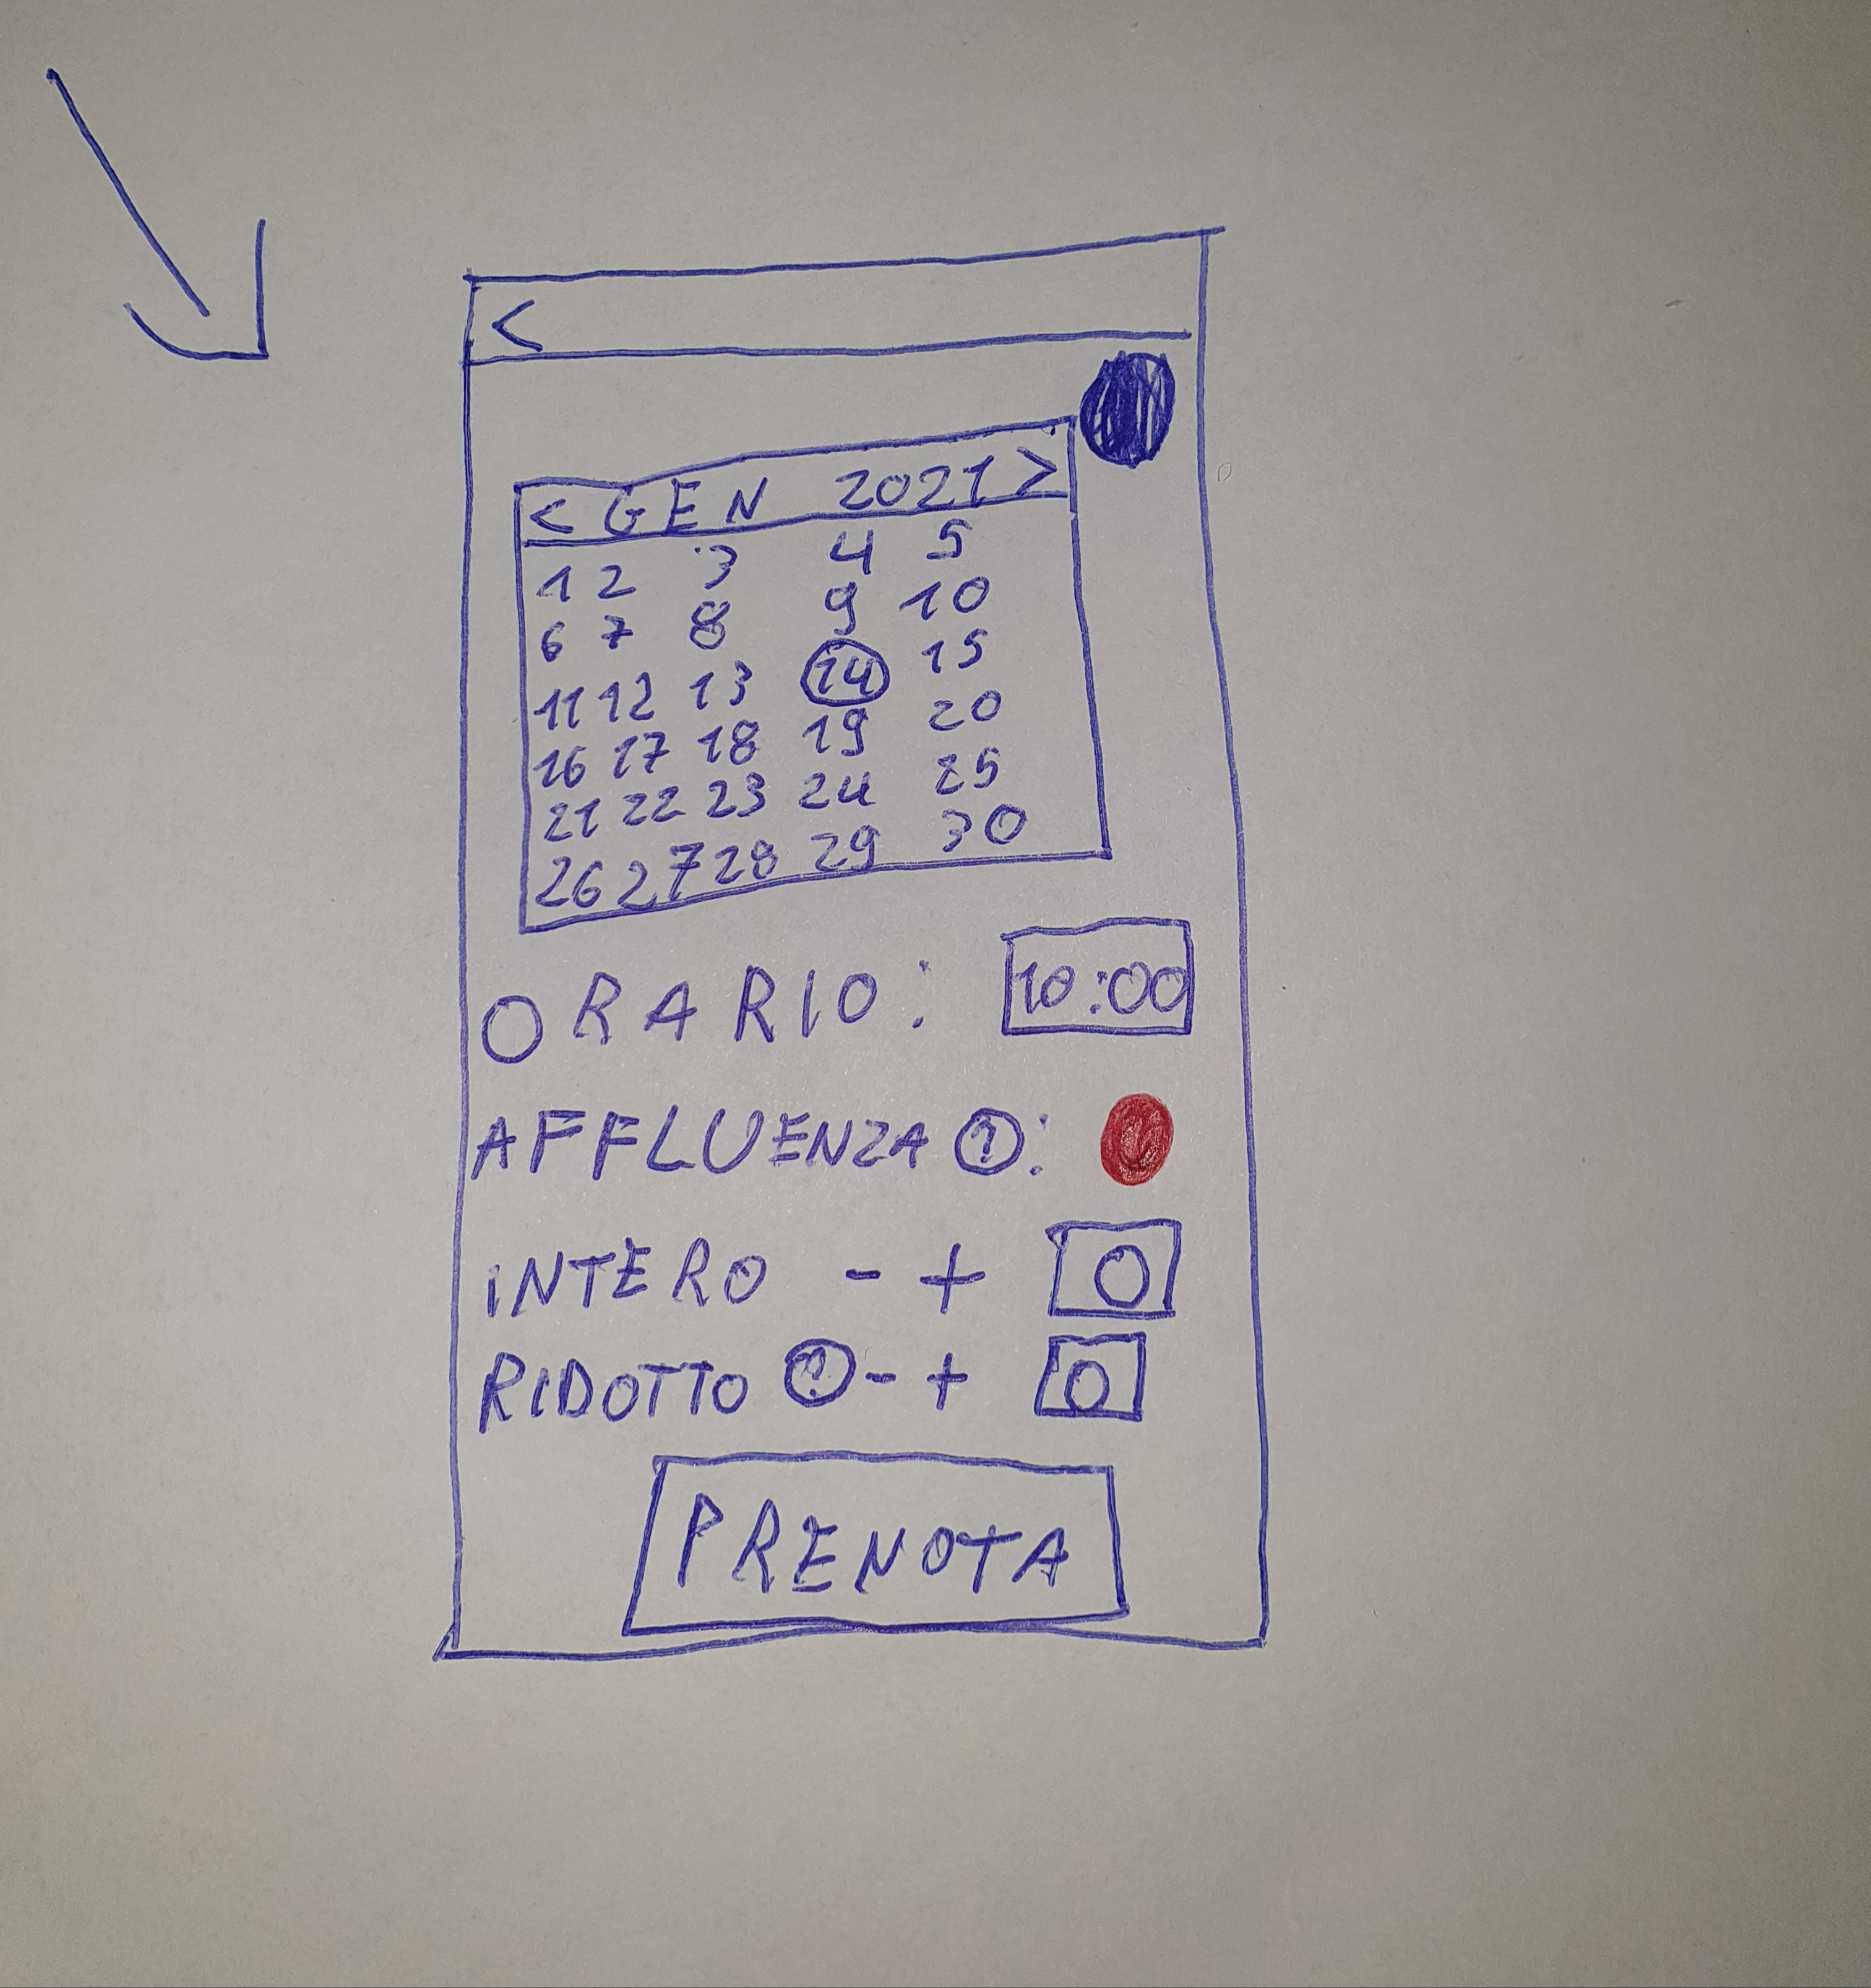 <
< GEN 2021 >
1 2 3 4 5
6 7 8 9 10
11 12 13 14 15
16 17 18 19 20
21 22 23 24 25
26 27 28 29 30
ORARIO: 10:00
AFFLUENZA ?:
INTERO - + 0
RIDOTTO ? - + 0
PRENOTA